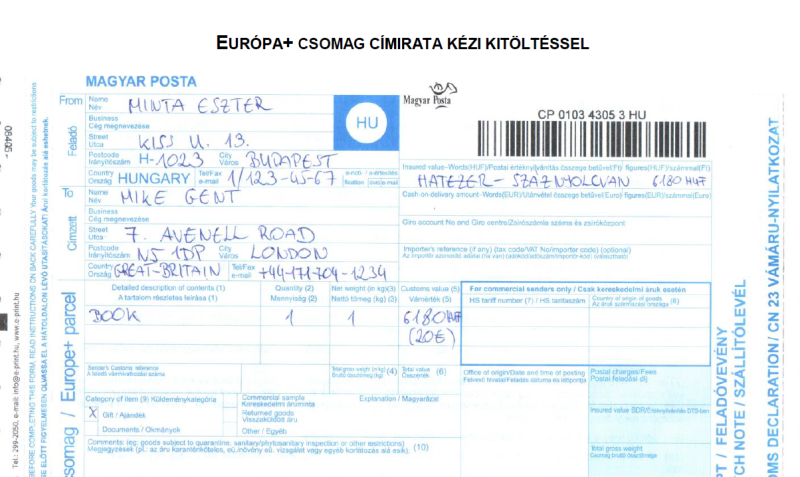 EURÓPA+ CSOMAG CÍMIRATA KÉZI KITÖLTÉSSEL
MAGYAR POSTA
Magyar Posta
HU
CP 0103 4305 3 HU
From
Feladó
Name
Név
MINTA ESZTER
Business
Cég megnevezése
Street
Utca
KISS U. 13.
Postcode
Irányítószám
H-1023
City
Város
BUDAPEST
Country
Ország
HUNGARY
Tel/Fax
e-mail
1/123-45-67
To
Címzett
Name
Név
MIKE GENT
Business
Cég megnevezése
Street
Utca
7. AVENELL ROAD
Postcode
Irányítószám
N5 1DP
City
Város
LONDON
Country
Ország
GREAT-BRITAIN
Tel/Fax
e-mail
+44-171-704-1234
Insured value-Words(HUF)/Postai értéknyilvánítás összege betűvel(Ft) figures(HUF)/számmal(Ft)
HATEZER-SZÁZNYOLCVAN 6180 HUF
Cash-on-delivery amount-Words(EUR)/Utánvétel összege betűvel(Euro) figures(EUR)/számmal(Euro)
Giro account No and Giro centre/Zsírószámla száma és zsíróközpont
Importer's reference (if any) (tax code/VAT No/importer code) (optional)
Detailed description of contents (1)
A tartalom részletes leírása (1)
Quantity (2)
Mennyiség (2)
Net weight (in kg)(3)
Nettó tömeg (kg) (3)
Customs value (5)
Vámérték (5)
For commercial senders only / Csak kereskedelmi áruk esetén
HS tariff number (7) / HS tarifaszám
Country of origin of goods
Az áruk származási országa (8)
BOOK
1
1
6180 HUF
(20€)
Sender's Customs reference
A feladó vámhivatkozási száma
Total gross weight (in kg) (4)
Bruttó össztömeg (kg)
Total value
Összérték (6)
Office of origin/Date and time of posting
Felvevő hivatal/Feladás dátuma és időpontja
Postal charges/Fees
Postai feladási díj
Category of item (9) Küldeménykategória
X
Gift / Ajándék
Documents / Okmányok
Commercial sample
Kereskedelmi áruminta
Returned goods
Visszaküldött áru
Other / Egyéb
Explanation / Magyarázat
Total gross weight
Csomag bruttó össztömege
Comments: (eg: goods subject to quarantine, sanitary/phytosanitary inspection or other restrictions)
Megjegyzések (pl.: az áru karanténköteles, eü./növény eü. vizsgálat vagy egyéb korlátozás alá esik). (10)
csomag / Europe+ parcel
Tel.: 299-2050, e-mail: info@e-print.hu, www.e-print.hu
BEFORE COMPLETING THIS FORM, READ INSTRUCTIONS ON BACK CAREFULLY Your goods may be subject to restrictions
FELADÓVEVÉNY
NOTE / SZÁLLÍTÓLEVÉL
DECLARATION / CN 23 VÁMÁRU-NYILATKOZAT